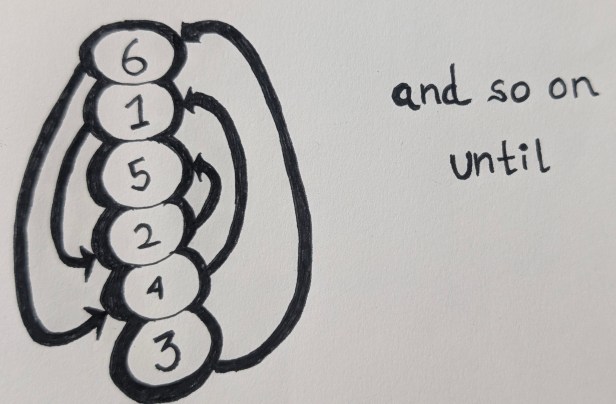 6
1
5
2
4
3
and so on
until